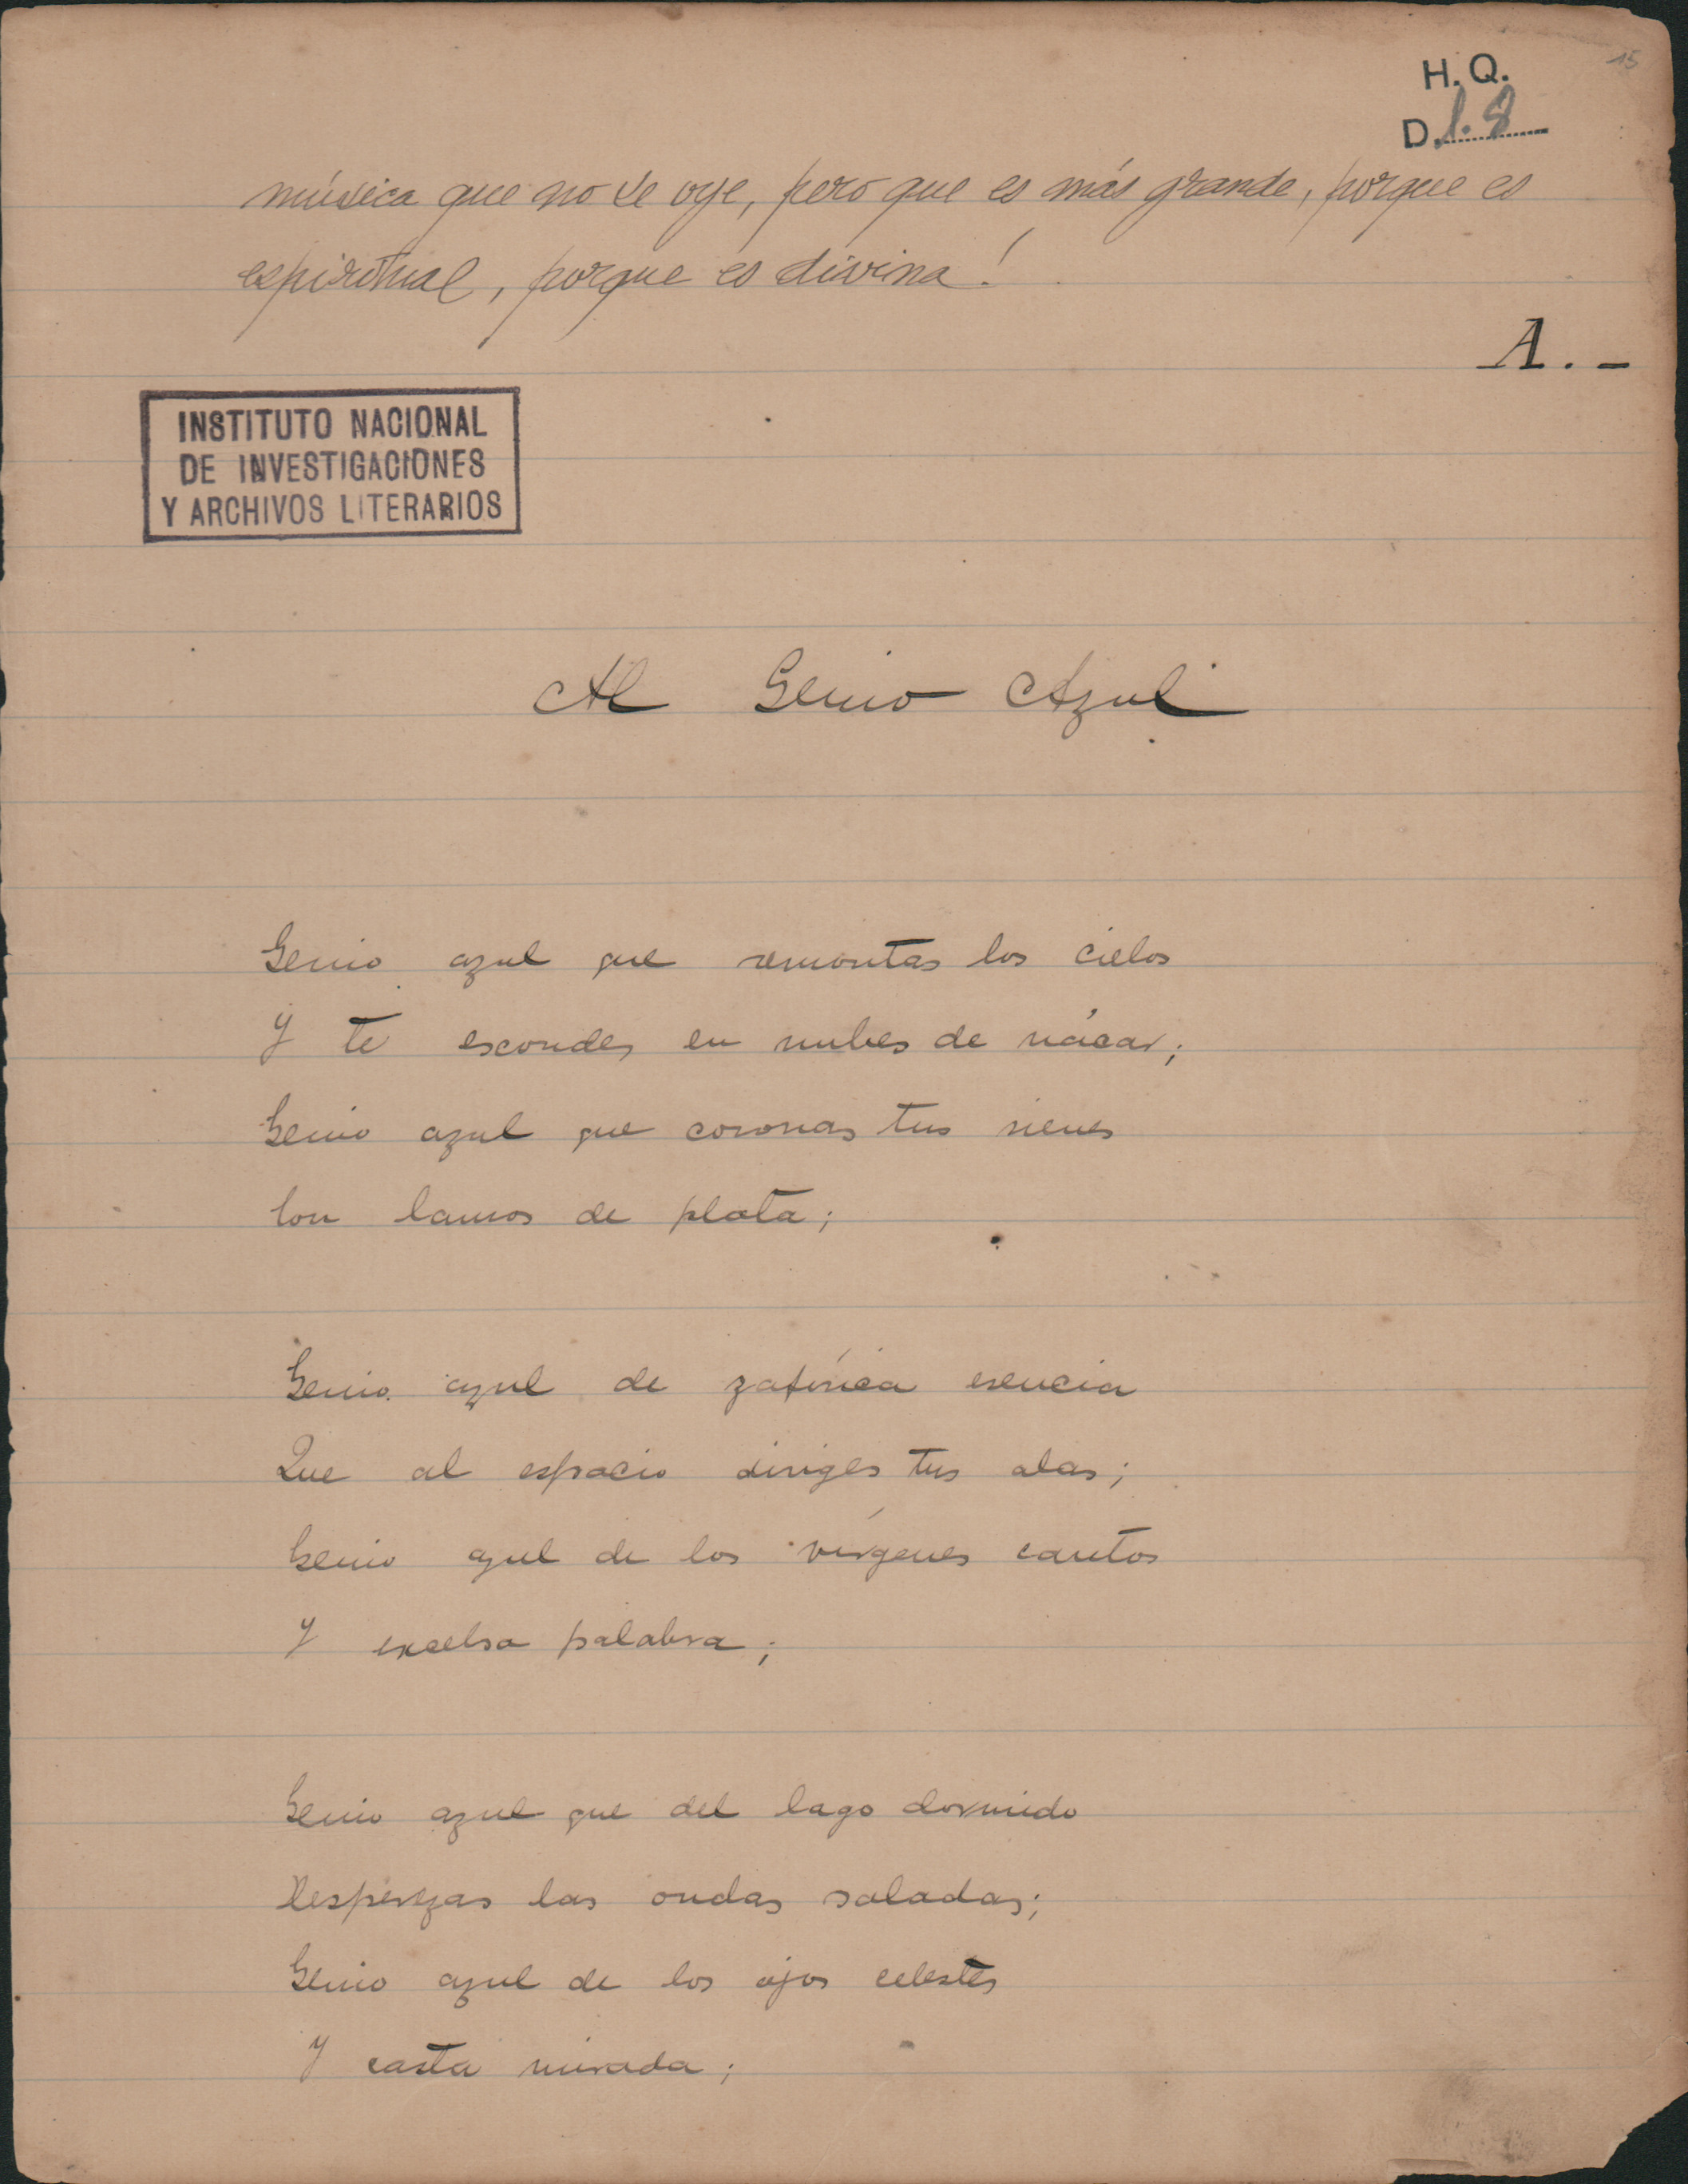 15
H. Q.
D. 1.8
música que no se oye, pero que es más grande, porque es
espiritual, porque es divina!
A. -
INSTITUTO NACIONAL
DE INVESTIGACIONES
Y ARCHIVOS LITERARIOS
Al Genio Azul
Genio azul que remontas los cielos
Y te escondes en nubes de nácar;
Genio azul que coronas tus sienes
Con lauros de plata;
Genio azul de zafírica esencia
Que al espacio diriges tus alas;
Genio azul de los vírgenes cantos
Y excelsa palabra;
Genio azul que del lago dormido
Desperezas las ondas saladas;
Genio azul de los ojos celestes
Y casta mirada;